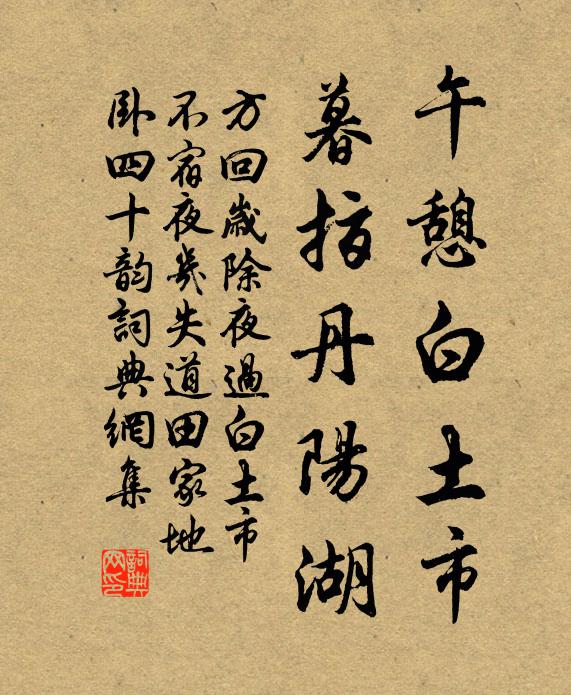 午憩白土市
暮指丹陽湖
方回歲除夜過白土市
不宿夜幾失道田家地
卧四十韵詞典網集
詞典网印